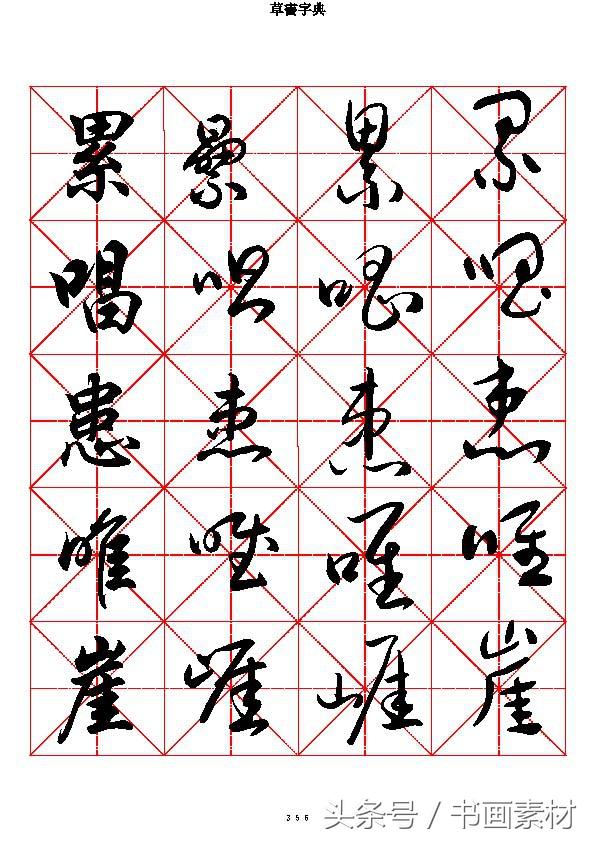 草書字典
累 纍 累 累
唱 唱 唱 唱
患 患 患 患
唯 唯 唯 唯
崖 崖 崖 崖
356
头条号 / 书画素材